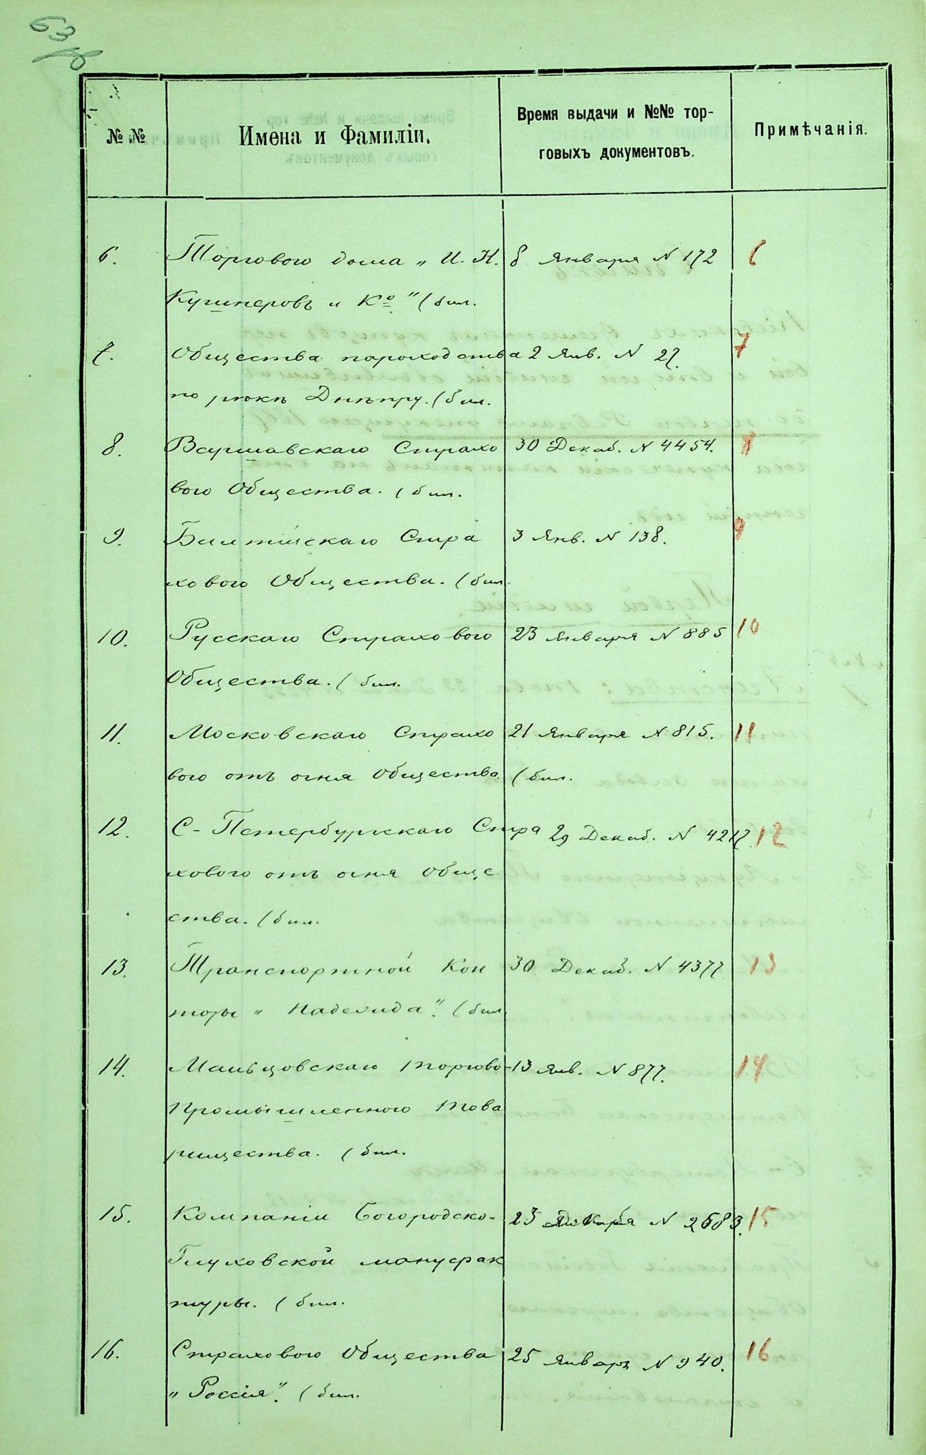 63
№ №
Имена и Фамиліи.
Время выдачи и №№ тор-
говыхъ документовъ.
Примѣчанія.
6. Торговаго дома „И. Н. 8 Января N 172 6
Кушнеровъ и Ко" (бил.
7. Общества пароходства 2 Янв. N 27. 7
по рѣкѣ Днѣпру. (бил.
8. Варшавскаго Страхо 30 Декаб. N 4454. 8
вого Общества. (бил.
9. Балтійскаго Стра 3 Янв. N 138. 9
хового Общества. (бил.
10. Русскаго Страхового 23 Января N 885 10
Общества. (бил.
11. Московскаго Страхо 21 Января N 815. 11
вого отъ огня Общества. (бил.
12. С-Петербургскаго Стра 29 Декаб. N 4217. 12
хового отъ огня Обще
ства. (бил.
13. Транспортной Кон 30 Декаб. N 4377 13
торы „Надежда". (бил
14. Мальцовскаго Торгово- 13 Янв. N 877. 14
Промышленного Това
рищества. (бил.
15. Компаніи Богородско- 23 Декабря N 2683. 15
Глуховской мануфак
туры. (бил.
16. Страхового Общества 25 Января N 940. 16
„Россія". (бил.